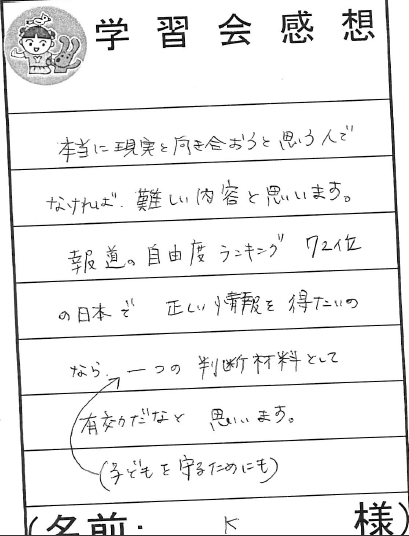 学習会感想
本当に現実と向き合おうと思う人で
なければ、難しい内容と思います。
報道の自由度ランキング 72位
の日本で 正しい情報を得たいの
なら、一つの判断材料として
有効だなと 思います。
(子どもを守るためにも)
(名前: K 様)